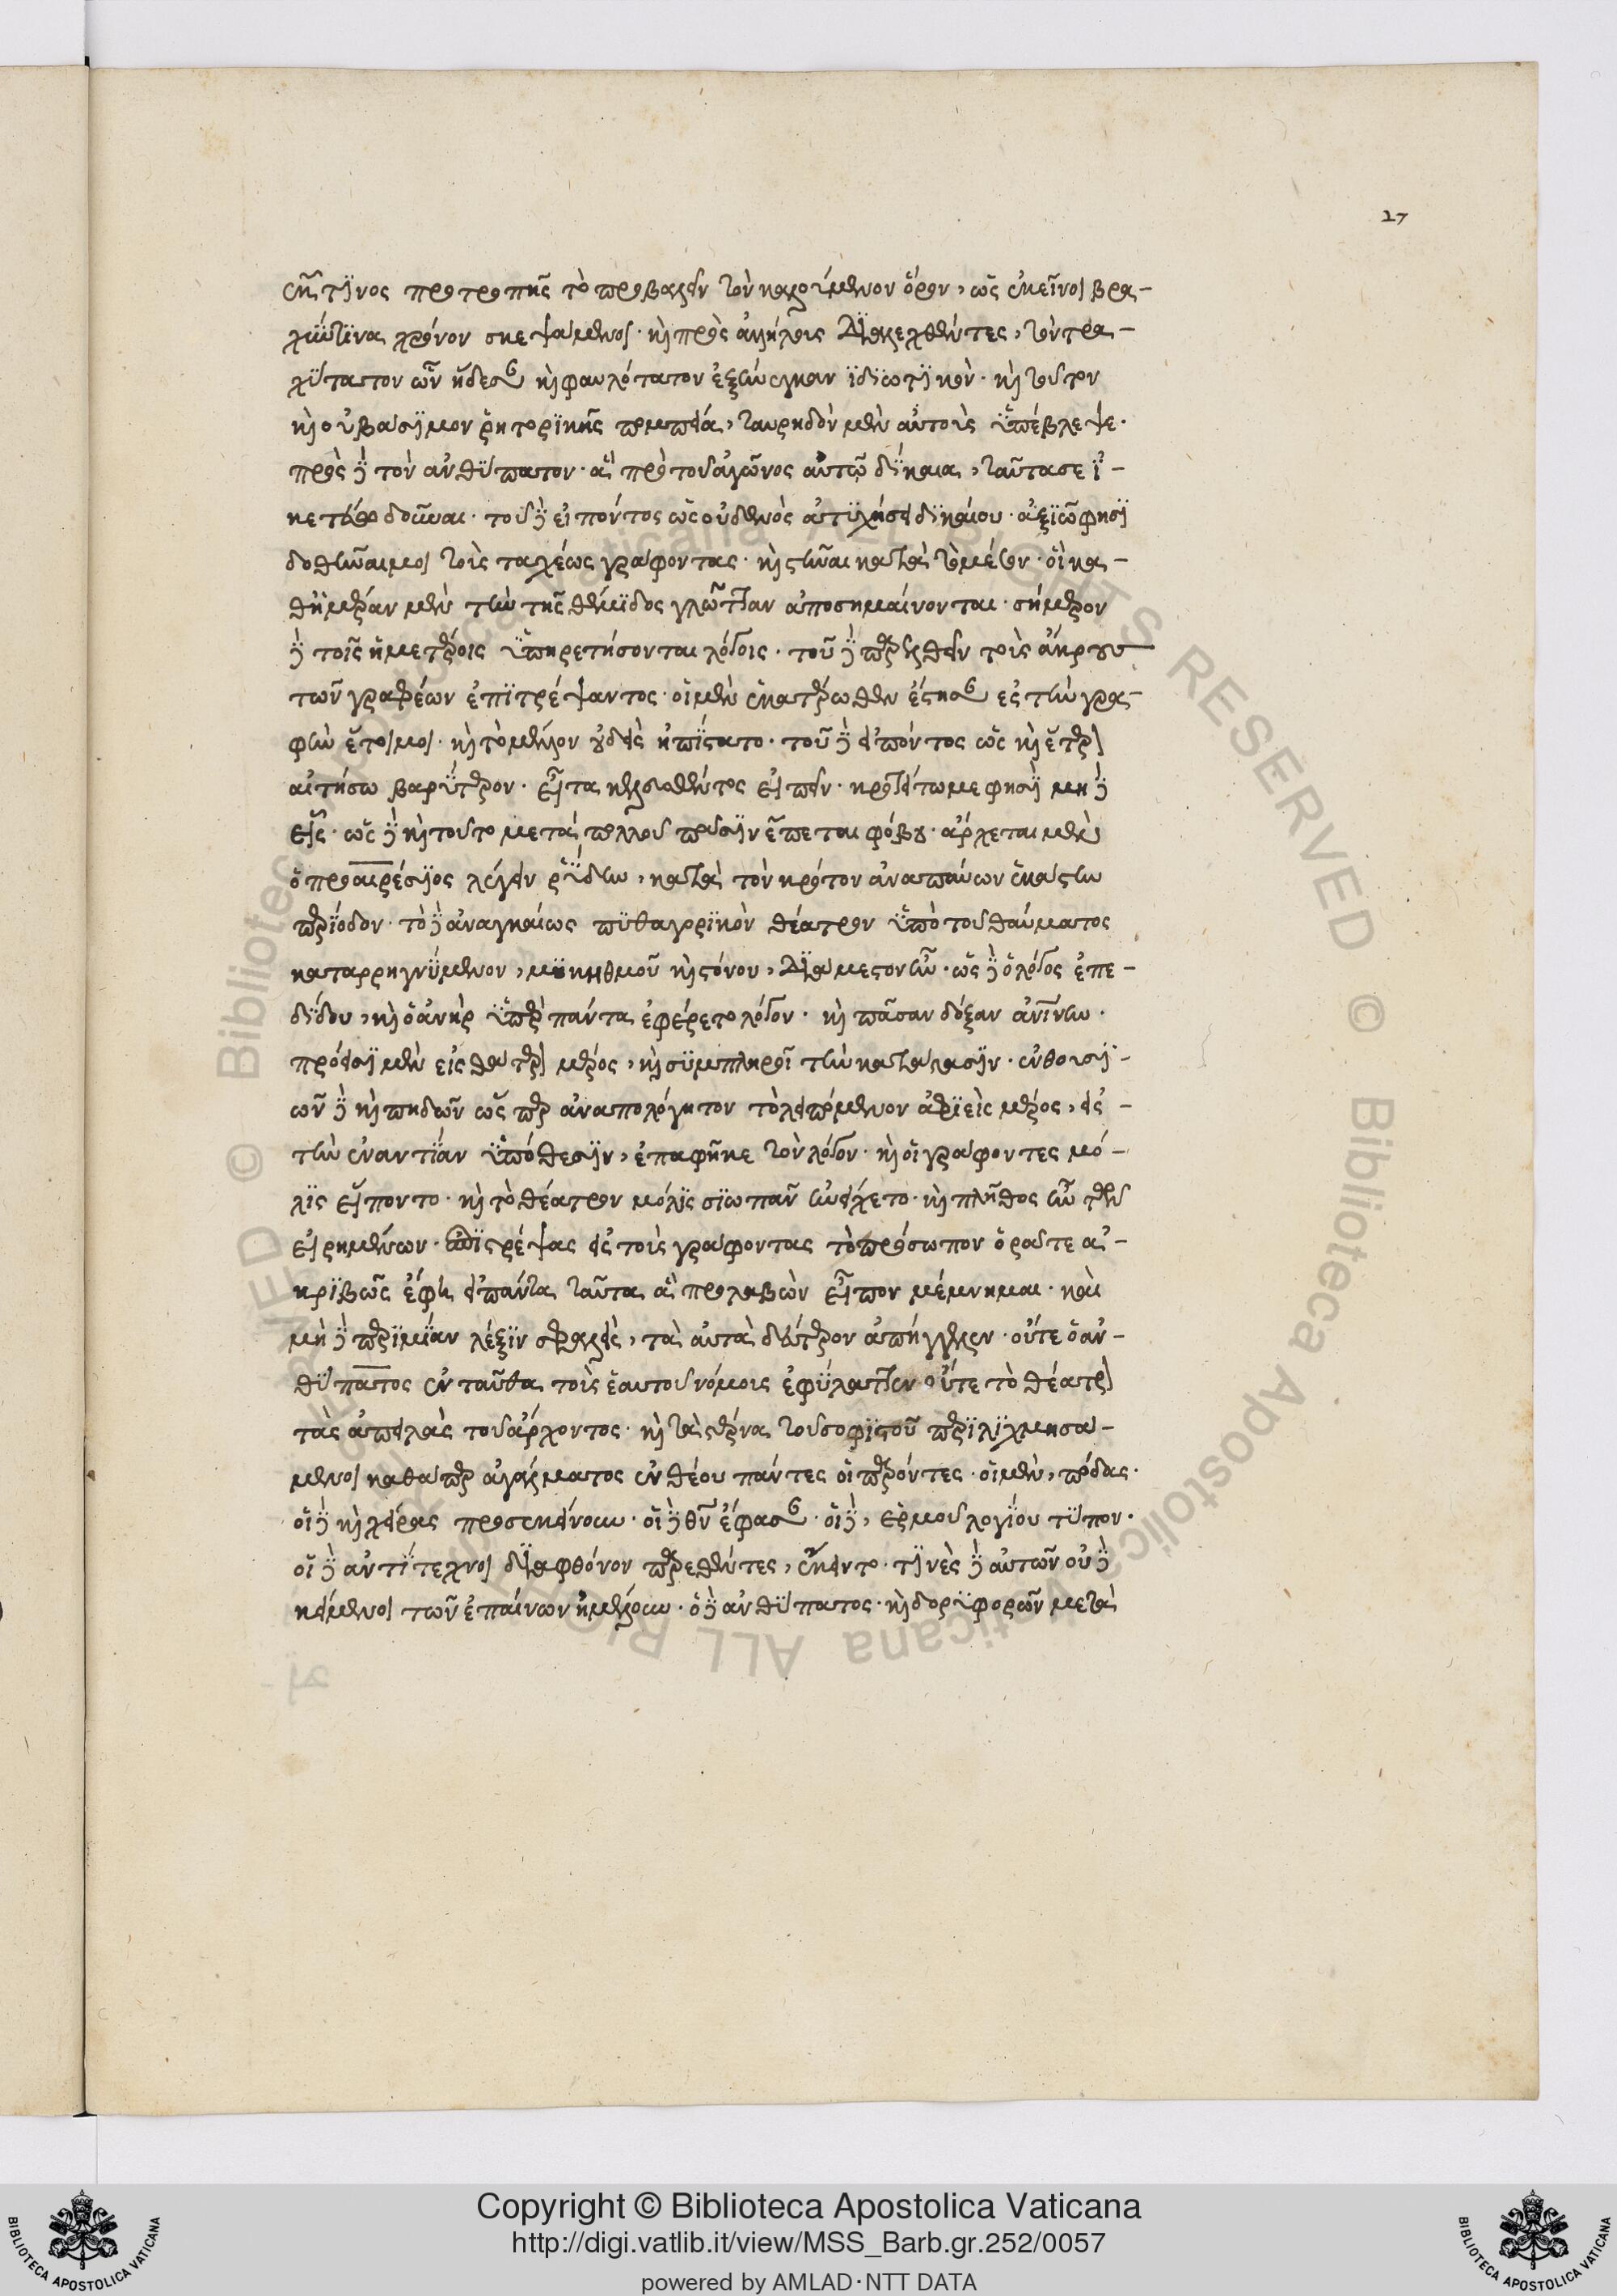 ἐκ τινος προτροπῆς τὸ προβαλεῖν τὸν καλούμενον ὅρον, ὡς ἐκεῖνοι βρα-
χύν τινα χρόνον σκεψάμενοι· καὶ πρὸς ἀλλήλοις διαλεχθέντες, τὸν τρα-
χύτατον ὧν ἤδεσαν καὶ φαυλότατον ἐξήνεγκαν ἰδιωτικὸν· καὶ τοῦτον
καὶ οὐ βάσιμον ῥητορικῆς πομπεία, ταυρηδὸν μὲν αὐτοὺς ὑπέβλεψε·
πρὸς δὲ τὸν ἀνθύπατον· ἃ πρὸ τοῦ ἀγῶνος αὐτῶ δίκαια, ταῦτα σε ἱ-
κετεύω δοῦναι· τοῦ δὲ εἰπόντος ὡς οὐδενὸς ἀτυχήσει δικαίου· ἀξιῶ φησὶ
δοθῆναι μοι τοὺς ταχέως γράφοντας· καὶ στῆναι κατὰ τὸ μέσον· οἳ κα-
θημέραν μὲν τὴν τῆς θέμιδος γλῶτταν ἀποσημαίνονται· σήμερον
δὲ τοῖς ἡμετέροις ὑπηρετήσονται λόγοις· τοῦ δὲ παρελθεῖν τοὺς ἄκρους
τῶν γραφέων ἐπιτρέψαντος· οἱ μὲν ἑκατέρωθεν ἔστησαν ἐς τὴν γρα-
φὴν ἕτοιμοι· καὶ τὸ μέλλον οὐδεὶς ἠπίστατο· τοῦ δὲ εἰπόντος ὡς καὶ ἕτερον
αἰτήσω βαρύτερον· εἶτα κελευσθέντος εἰπεῖν· κροτείτω με φησὶ μὴ δὲ
εἷς· ὡς δὲ καὶ τοῦτο μετὰ πολλοῦ πᾶσιν ἕπεται φόβου· ἄρχεται μὲν
ὁ προαιρέσιος λέγειν ῥύδην, κατὰ τὸν κρότον ἀναπαύων ἑκάστην
περίοδον· τὸ δὲ ἀναγκαίως πυθαγορικὸν θέατρον ὑπὸ τοῦ θαύματος
καταρρηγνύμενον, μυκηθμοῦ καὶ στόνου, διάμεστον ἦν· ὡς δὲ ὁ λόγος ἐπε-
δίδου, καὶ ὁ ἀνὴρ ὑπὲρ πάντα ἐφέρετο λόγον· καὶ πᾶσαν δόξαν ἀνίνην·
πρόεισι μὲν εἰς θάτερον μέρος, καὶ συμπληροῖ τὴν κατάστασιν· ἐνθουσι-
ῶν δὲ καὶ πηδῶν ὥσπερ ἀναπολόγητον τὸ λειπόμενον ἀφιεὶς μέρος, εἰς
τὴν ἐναντίαν ὑπόθεσιν, ἐπαφῆκε τὸν λόγον· καὶ οἱ γράφοντες μό-
λις εἵποντο· καὶ τὸ θέατρον μόλις σιωπᾶν ἠνείχετο· καὶ πλῆθος ἦν τῶν
εἰρημένων· ἐπιστρέψας εἰς τοὺς γράφοντας τὸ πρόσωπον ὁρᾶτε ἀ-
κριβῶς ἔφη εἰ πάντα ταῦτα ἃ προλαβὼν εἶπον μέμνημαι· καὶ
μὴ δὲ περὶ μίαν λέξιν σφαλεὶς, τὰ αὐτὰ δεύτερον ἀπήγγελεν· οὔτε ὁ ἀν-
θύπατος ἐνταῦθα τοὺς ἑαυτοῦ νόμοις ἐφύλαττεν· οὔτε τὸ θέατρον
τὰς ἀπειλὰς τοῦ ἄρχοντος· καὶ τὰ στέρνα τοῦ σοφιστοῦ περιλιχμησά-
μενοι καθάπερ ἀγάλματος ἐνθέου πάντες οἱ παρόντες· οἱ μὲν, πόδας·
οἱ δὲ καὶ χεῖρας προσεκύνουν· οἱ δὲ θεὸν ἔφασαν· οἱ δὲ, ἑρμοῦ λογίου τύπον·
οἱ δὲ ἀντίτεχνοι διὰ φθόνον παρεθέντες, ἔκειντο· τινὲς δὲ αὐτῶν οὐ δὲ
κείμενοι τῶν ἐπαίνων ἠμέλουν· ὁ δὲ ἀνθύπατος· καὶ δορυφορῶν μετὰ
27
Copyright © Biblioteca Apostolica Vaticana
http://digi.vatlib.it/view/MSS_Barb.gr.252/0057
powered by AMLAD·NTT DATA
BIBLIOTECA APOSTOLICA VATICANA
BIBLIOTECA APOSTOLICA VATICANA